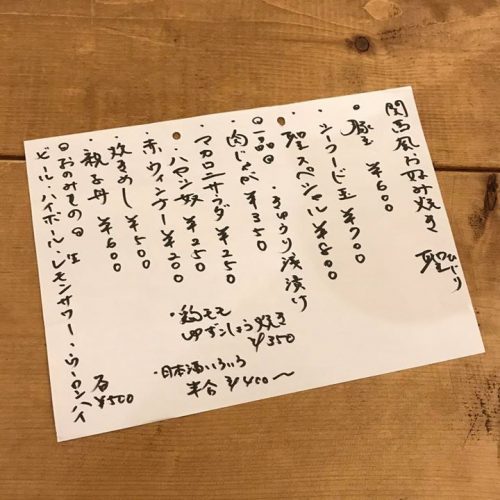 関西風お好み焼き 聖 ひじり
・豚玉 ¥600
・シーフード玉 ¥700
・聖スペシャル ¥800
◎一品◎ ・きゅうり浅漬け
・肉じゃが ¥350
・マカロニサラダ ¥250
・ハヤシ奴 ¥250
・赤ウィンナー ¥200
・炊きめし ¥500
・親子丼 ¥600
◎おのみもの◎
ビール・ハイボール・レモンサワー・ウーロンハイ
各¥500
・鶏モモ
ゆずこしょう焼き
¥350
・日本酒いろいろ
半合 ¥400〜